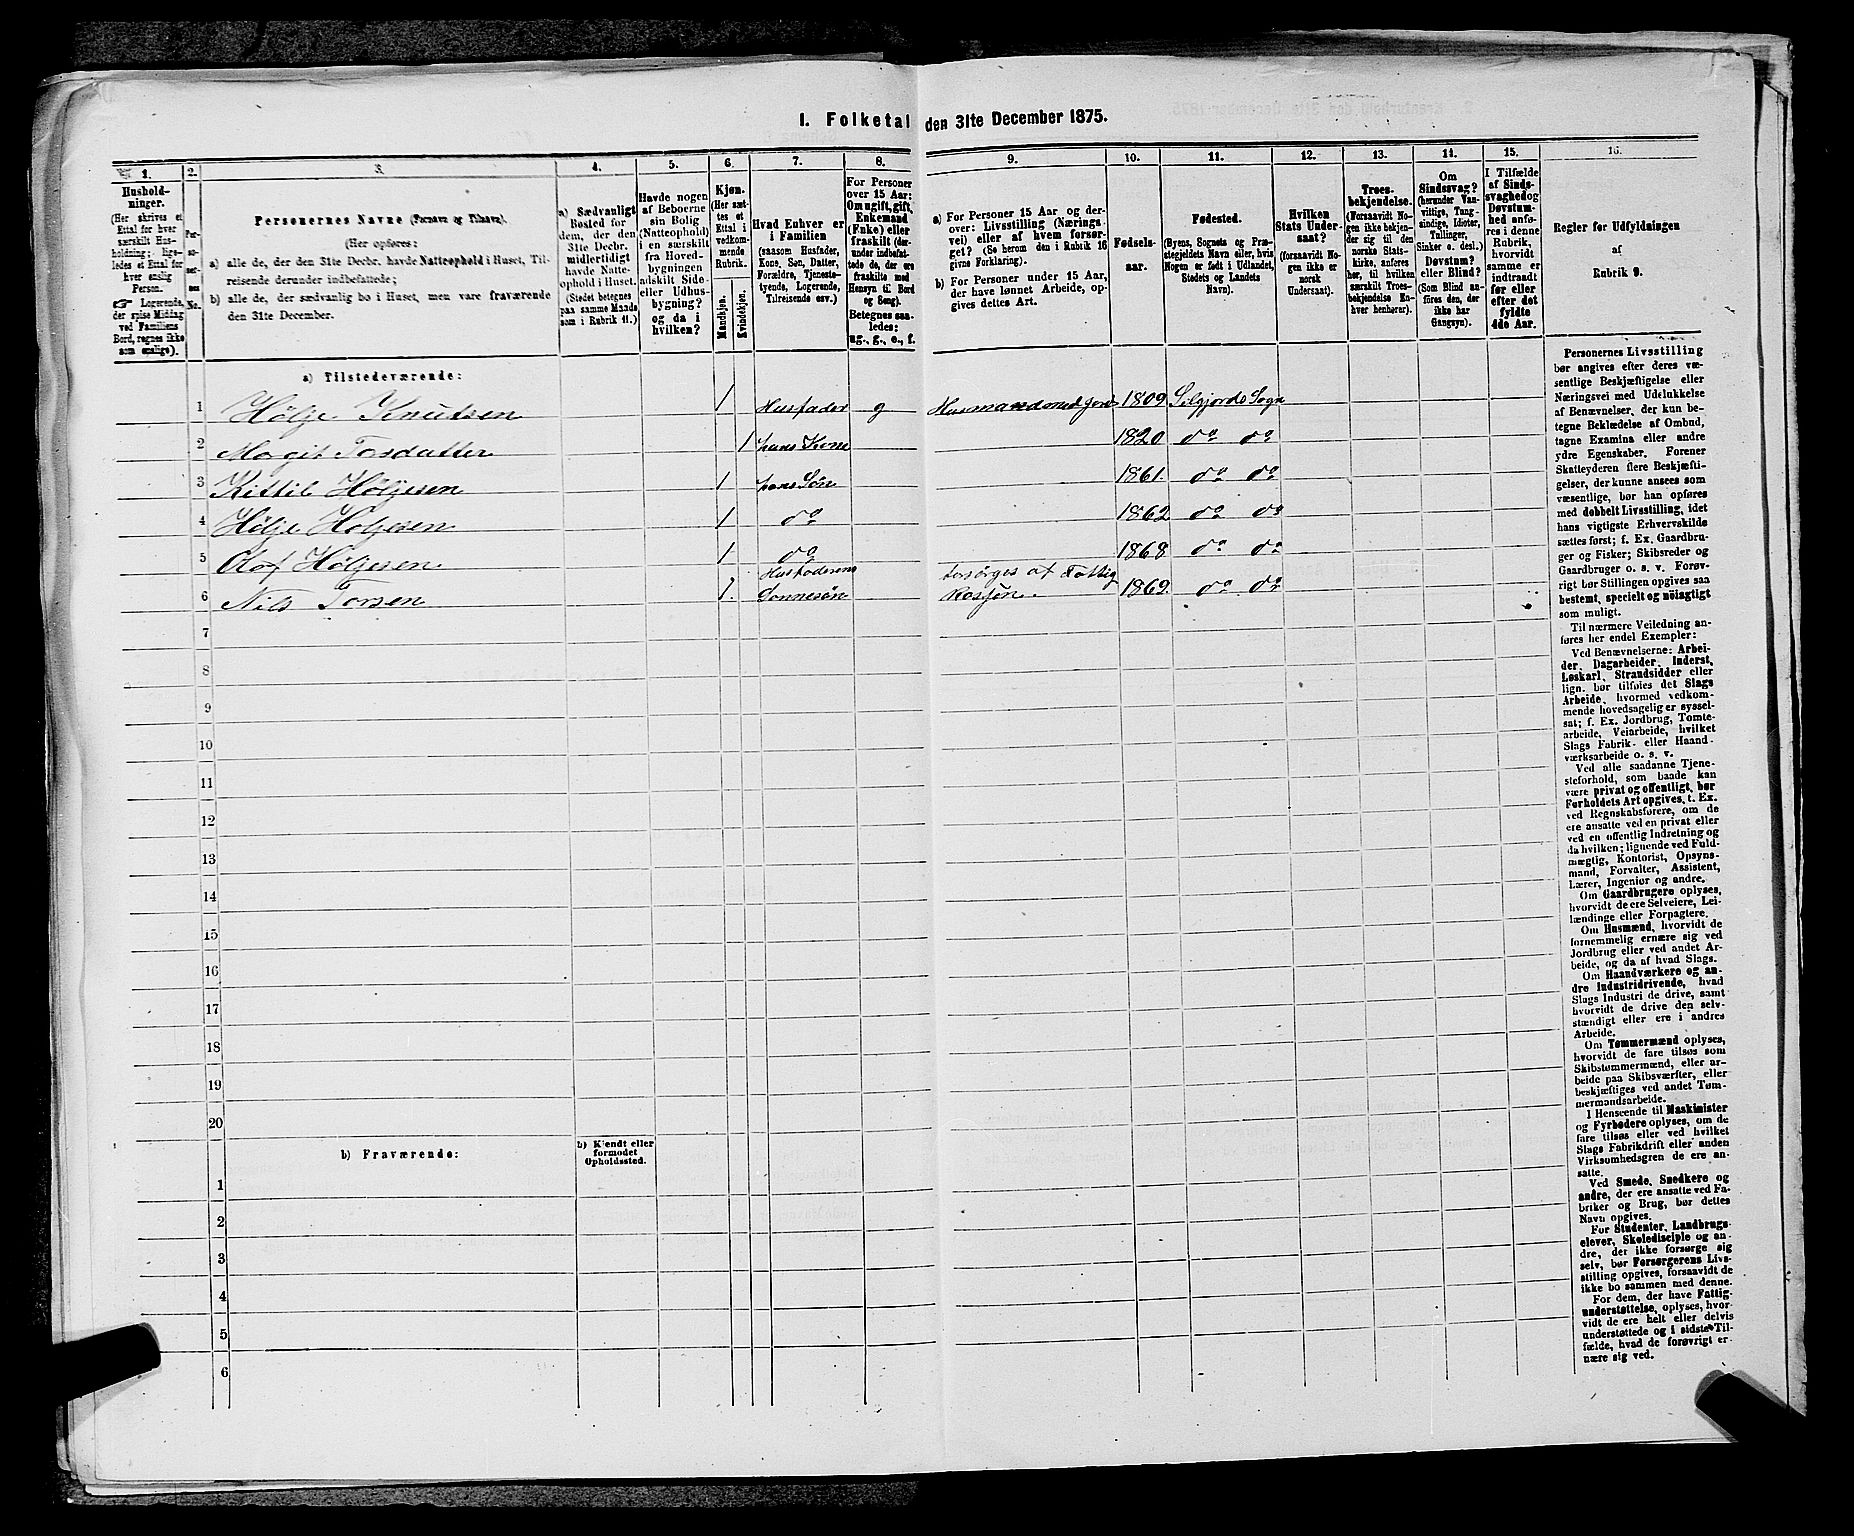 I. Folketal den 31te December 1875.
1.
Husholdninger.
(Her skrives et
Ettal for hver
særskilt Husholdning; ligeledes
et Ettal for
hver enslig
Person.
☞ Logerende,
der spise Middag
ved Familiens
Bord, regnes ikke
som enslige).
2.
Personernes
No.
3.
Personernes Navne (Fornavn og Tilnavn).
(Her opføres:
a) alle de, der den 31te Decbr. havde Natteophold i Huset, Tilreisende
derunder indbefattede;
b) alle de, der sædvanlig bo i Huset, men vare fraværende
den 31te December.
4.
a) Sædvanligt
Bosted for
dem, der den
31te Decbr.
midlertidigt
havde Natteophold
i Huset.
(Stedet betegnes
paa samme Maade
som i Rubrik 11.)
5.
Havde nogen
af Beboerne
sin Bolig
(Natteophold)
i en særskilt
fra Hovedbygningen
adskilt Side-
eller Udhusbygning?
og da i
hvilken?
6.
Kjøn.
(Her sættes
et
Ettal i
vedkommende
Rubrik.
Mandkjøn.
Kvindekjøn.
7.
Hvad Enhver er
i Familien
(saasom Husfader,
Kone, Søn, Datter,
Forældre, Tjenestetyende,
Logerende,
Tilreisende osv.)
8.
For Personer
over 15 Aar:
Om ugift, gift,
Enkemand
(Enke) eller
fraskilt (derunder
indbefattede
de, der ere
fraskilte med
Hensyn til Bord
og Seng).
Betegnes saaledes:
ug., g., e., f.
9.
a) For Personer 15 Aar og derover:
Livsstilling (Næringsvei)
eller af hvem forsørget?
(Se herom den i Rubrik 16
givne Forklaring).
b) For Personer under 15 Aar,
der have lønnet Arbeide, opgives
dettes Art.
10.
Fødselsaar.
11.
Fødested.
(Byens, Sognets og Præstegjeldets
Navn eller, hvis
Nogen er født i Udlandet,
Stedets og Landets
Navn).
12.
Hvilken
Stats Undersaat?
(forsaavidt Nogen
ikke er
norsk
Undersaat).
13.
Troesbekjendelse.
(Forsaavidt Nogen
ikke bekjender
sig til den
norske Statskirke,
anføres
her, til hvilken
særskilt Troesbekjendelse
Enhver
henhører).
14.
Om
Sindssvag?
(herunder Vanvittige,
Tungsindige,
Idioter,
Tullinger,
Sinker o. desl.)
Døvstum?
eller Blind?
(Som Blind anføres
den, der
ikke har
Gangsyn).
15.
I Tilfælde
af Sindssvaghed
og
Døvstumhed
anføres
i denne
Rubrik,
hvorvidt
samme er
indtraadt
før eller
efter det
fyldte
4de Aar.
16.
Regler for Udfyldningen
af
Rubrik 9.
a) Tilstedeværende:
1 Hølje Knutsen 1 Husfader g Husmand med Jord 1809 Silgjords Sogn
2 Magit Torsdatter 1 hans Kone 1820 do do
3 Kittil Høljesen 1 hans Søn 1861. do do
4 Hølje Høljesen 1 do 1862 do do
5 Olaf Høljesen 1 do 1868 do do
6 Nils Torsen 1. Husfaderens Sønnesøn forsørges af Fattig Kassen. 1869. do do
7
8
9
10
11
12
13
14
15
16
17
18
19
20
b) Fraværende:
b) Kjendt eller
formodet
Opholdssted.
1
2
3
4
5
6
Personernes Livsstilling
bør angives efter deres væsentlige
Beskjæftigelse eller
Næringsvei med Udelukkelse
af Benævnelser, der kun betegne
Beklædelse af Ombud,
tagne Examina eller andre
ydre Egenskaber. Forener
Skatteyderen flere Beskjæftigelser,
der kunne ansees som
væsentlige, bør han opføres
med dobbelt Livsstilling, idet
hans vigtigste Erhvervskilde
sættes først; f. Ex. Gaardbruger
og Fisker; Skibsreder og
Gaardbruger o. s. v. Forøvrigt
bør Stillingen opgives saa
bestemt, specielt og nøiagtigt
som muligt.
Til nærmere Veiledning anføres
her endel Exempler:
Ved Benævnelserne: Arbeider,
Dagarbeider, Inderst,
Løskarl, Strandsidder eller
lign. bør tilføies det Slags
Arbeide, hvormed vedkommende
hovedsagelig er sysselsat;
f. Ex. Jordbrug, Tomtearbeide,
Veiarbeide, hvilket
Slags Fabrik- eller Haandværksarbeide
o. s. v.
Ved alle saadanne Tjenesteforhold,
som baade kan
være privat og offentligt, bør
Forholdets Art opgives, t. Ex.
ved Regnskabsførere, om de
ere ansatte ved en privat eller
ved en offentlig Indretning og
da hvilken; lignende ved Fuldmægtig,
Kontorist, Opsynsmand,
Forvalter, Assistent,
Lærer, Ingeniør og andre.
Om Gaardbrugere oplyses,
hvorvidt de ere Selveiere, Leilændinge
eller Forpagtere.
Om Husmænd, hvorvidt de
fornemmelig ernære sig ved
Jordbrug eller ved andet Arbeide,
og da af hvad Slags.
Om Haandværkere og andre
Industridrivende, hvad
Slags Industri de drive, samt
hvorvidt de drive den selvstændigt
eller ere i andres
Arbeide.
Om Tømmermænd oplyses,
hvorvidt de fare tilsøs som
Skibstømmermænd, eller arbeide
paa Skibsværfter, eller
beskjæftiges ved andet Tømmermandsarbeide.
I Henseende til Maskinister
og Fyrbødere oplyses, om de
fare tilsøs eller ved hvilket
Slags Fabrikdrift eller anden
Virksomhedsgren de ere ansatte.
Ved Smede, Snedkere og
andre, der ere ansatte ved Fabriker
og Brug, bør dettes
Navn opgives.
For Studenter, Landbrugselever,
Skoledisciple og andre,
der ikke forsørge sig
selv, bør Forsørgerens Livsstilling
opgives, forsaavidt de
ikke bo sammen med denne.
For dem, der have Fattigunderstøttelse,
oplyses, hvorvidt
de ere helt eller delvis
understøttede og i sidste Tilfælde,
hvad de forøvrigt ernære
sig ved.